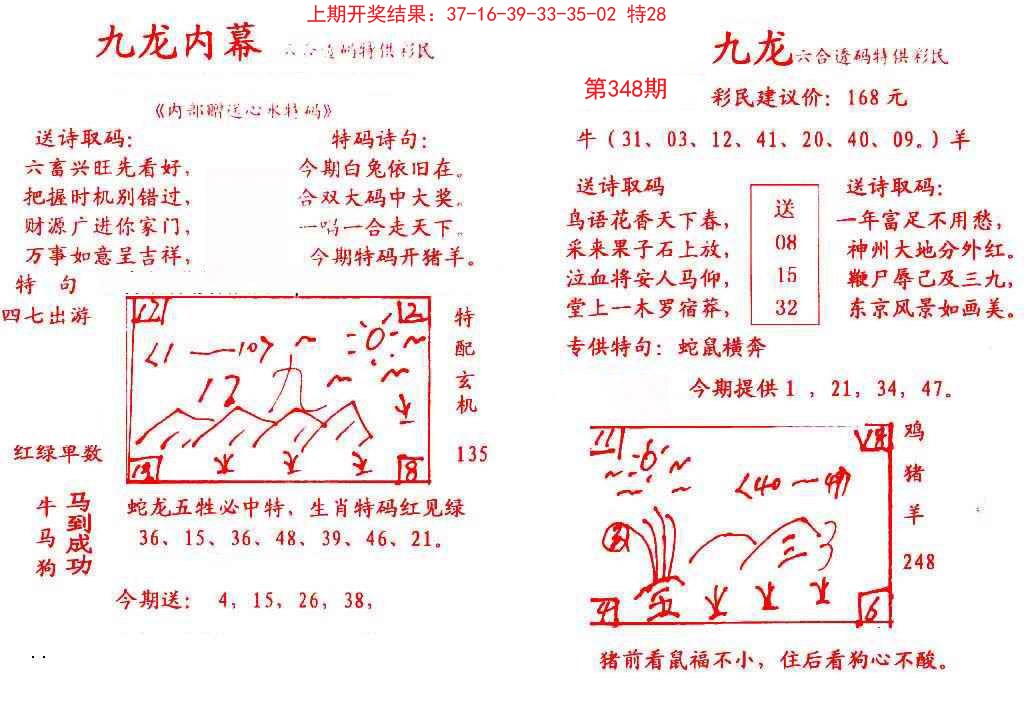 上期开奖结果：37-16-39-33-35-02 特28
九龙内幕 六合透码特供彩民
《内部赠送心水特码》
送诗取码：
六畜兴旺先看好，
把握时机别错过，
财源广进你家门，
万事如意呈吉祥，
特码诗句：
今期白兔依旧在。
合双大码中大奖。
一唱一合走天下。
今期特码开猪羊。
特 句
四七出游
红绿单数
17
12
<1—10>
12
九
19
8
特配玄机
135
牛马狗
马到成功
蛇龙五牲必中特，生肖特码红见绿
36、15、36、48、39、46、21。
今期送： 4，15，26，38，
九龙 六合透码特供彩民
第348期
彩民建议价：168元
牛（31、03、12、41、20、40、09。）羊
送诗取码
鸟语花香天下春，
采来果子石上放，
泣血将安人马仰，
堂上一木罗宿莽，
送
08
15
32
送诗取码：
一年富足不用愁，
神州大地分外红。
鞭尸辱己及三九，
东京风景如画美。
专供特句：蛇鼠横奔
今期提供1 ，21，34，47。
11
<40—49>
三
3
4
五
6
鸡
猪
羊
248
猪前看鼠福不小，住后看狗心不酸。